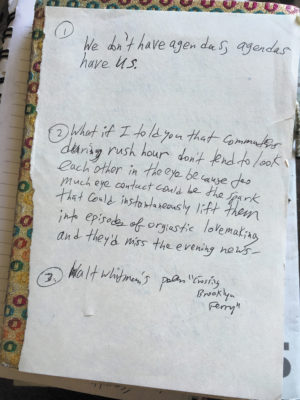 ①
We don't have agendas, agendas
have us.
② What if I told you that commuters
during rush hour don't tend to look
each other in the eye because too
much eye contact could be the spark
that could instantaneously lift them
into episodes of orgiastic lovemaking
and they'd miss the evening news —
③ Walt Whitman's poem "Crossing
Brooklyn
Ferry"